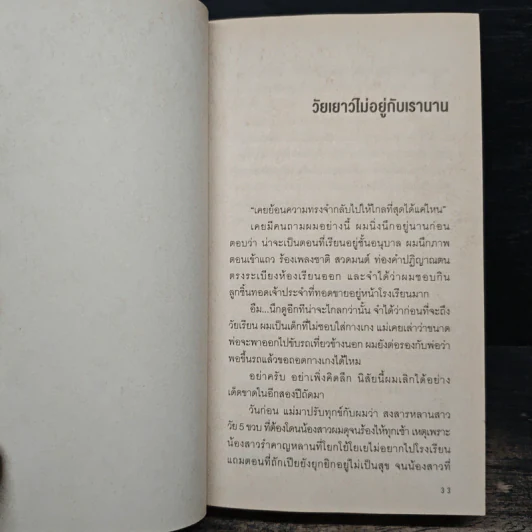 วัยเยาว์ไม่อยู่กับเรานาน
"เคยย้อนความทรงจำกลับไปให้ไกลที่สุดได้แค่ไหน"
เคยมีคนถามผมอย่างนี้ ผมนิ่งนึกอยู่นานก่อน
ตอบว่า น่าจะเป็นตอนที่เรียนอยู่ชั้นอนุบาล ผมนึกภาพ
ตอนเข้าแถว ร้องเพลงชาติ สวดมนต์ ท่องคำปฏิญาณตน
ตรงระเบียงห้องเรียนออก และจำได้ว่าผมชอบกิน
ลูกชิ้นทอดเจ้าประจำที่ทอดขายอยู่หน้าโรงเรียนมาก
อืม...นึกดูอีกทีน่าจะไกลกว่านั้น จำได้ว่าก่อนที่จะถึง
วัยเรียน ผมเป็นเด็กที่ไม่ชอบใส่กางเกง แม่เคยเล่าว่าขนาด
พ่อจะพาออกไปขับรถเที่ยวข้างนอก ผมยังต่อรองกับพ่อว่า
พอขึ้นรถแล้วขอถอดกางเกงได้ไหม
อย่าครับ อย่าเพิ่งคิดลึก นิสัยนี้ผมเลิกได้อย่าง
เด็ดขาดในอีกสองปีถัดมา
วันก่อน แม่มาปรับทุกข์กับผมว่า สงสารหลานสาว
วัย 5 ขวบ ที่ต้องโดนน้องสาวผมดุจนร้องไห้ทุกเช้า เหตุเพราะ
น้องสาวรำคาญหลานที่โยกโย้โยเยไม่อยากไปโรงเรียน
แถมตอนที่ถักเปียยังยุกยิกอยู่ไม่เป็นสุข จนน้องสาวที่
33